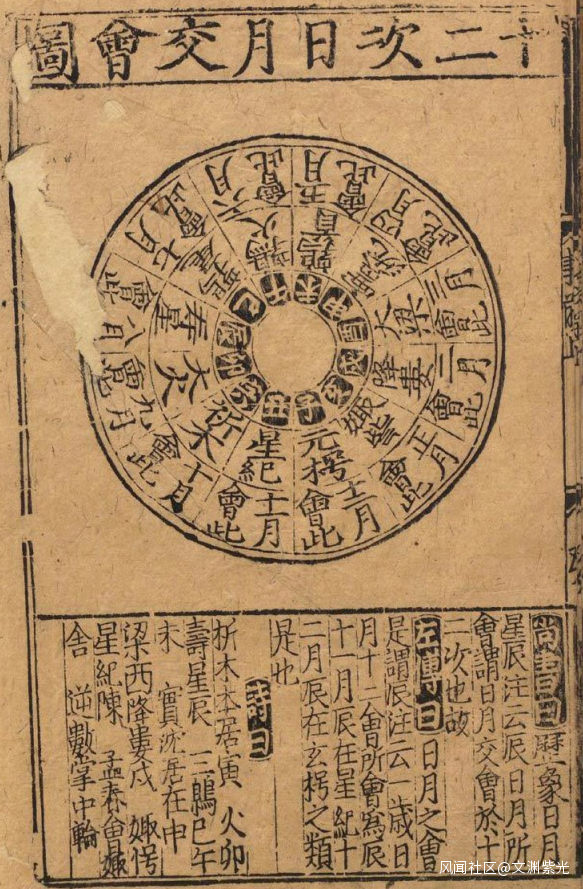 十二次日月交會圖
五月會此 鶉首 未
六月會此 鶉火 午
七月會此 鶉尾 巳
八月會此 寿星 辰
九月會此 大火 卯
十月會此 析木 寅
十一月會此 星紀 丑
十二月會此 元枵 子
正月會此 娵訾 亥
二月會此 降婁 戌
三月會此 大梁 酉
四月會此 实沈 申
尚書曰歷象日月
星辰注云辰日月所
會謂日月交會於十
二次也故
左傳曰日月之會
是謂辰注云一歲日
月十二會所會爲辰
十一月辰在星紀十
二月辰在玄枵之類
是也
詩曰
析木本居寅 火卯
壽星辰 三鶉巳午
未 實沈居在申
梁酉降婁戌 娵愕
星紀陳 孟春會娵
舍 逆數掌中輪
风闻社区@文渊紫光